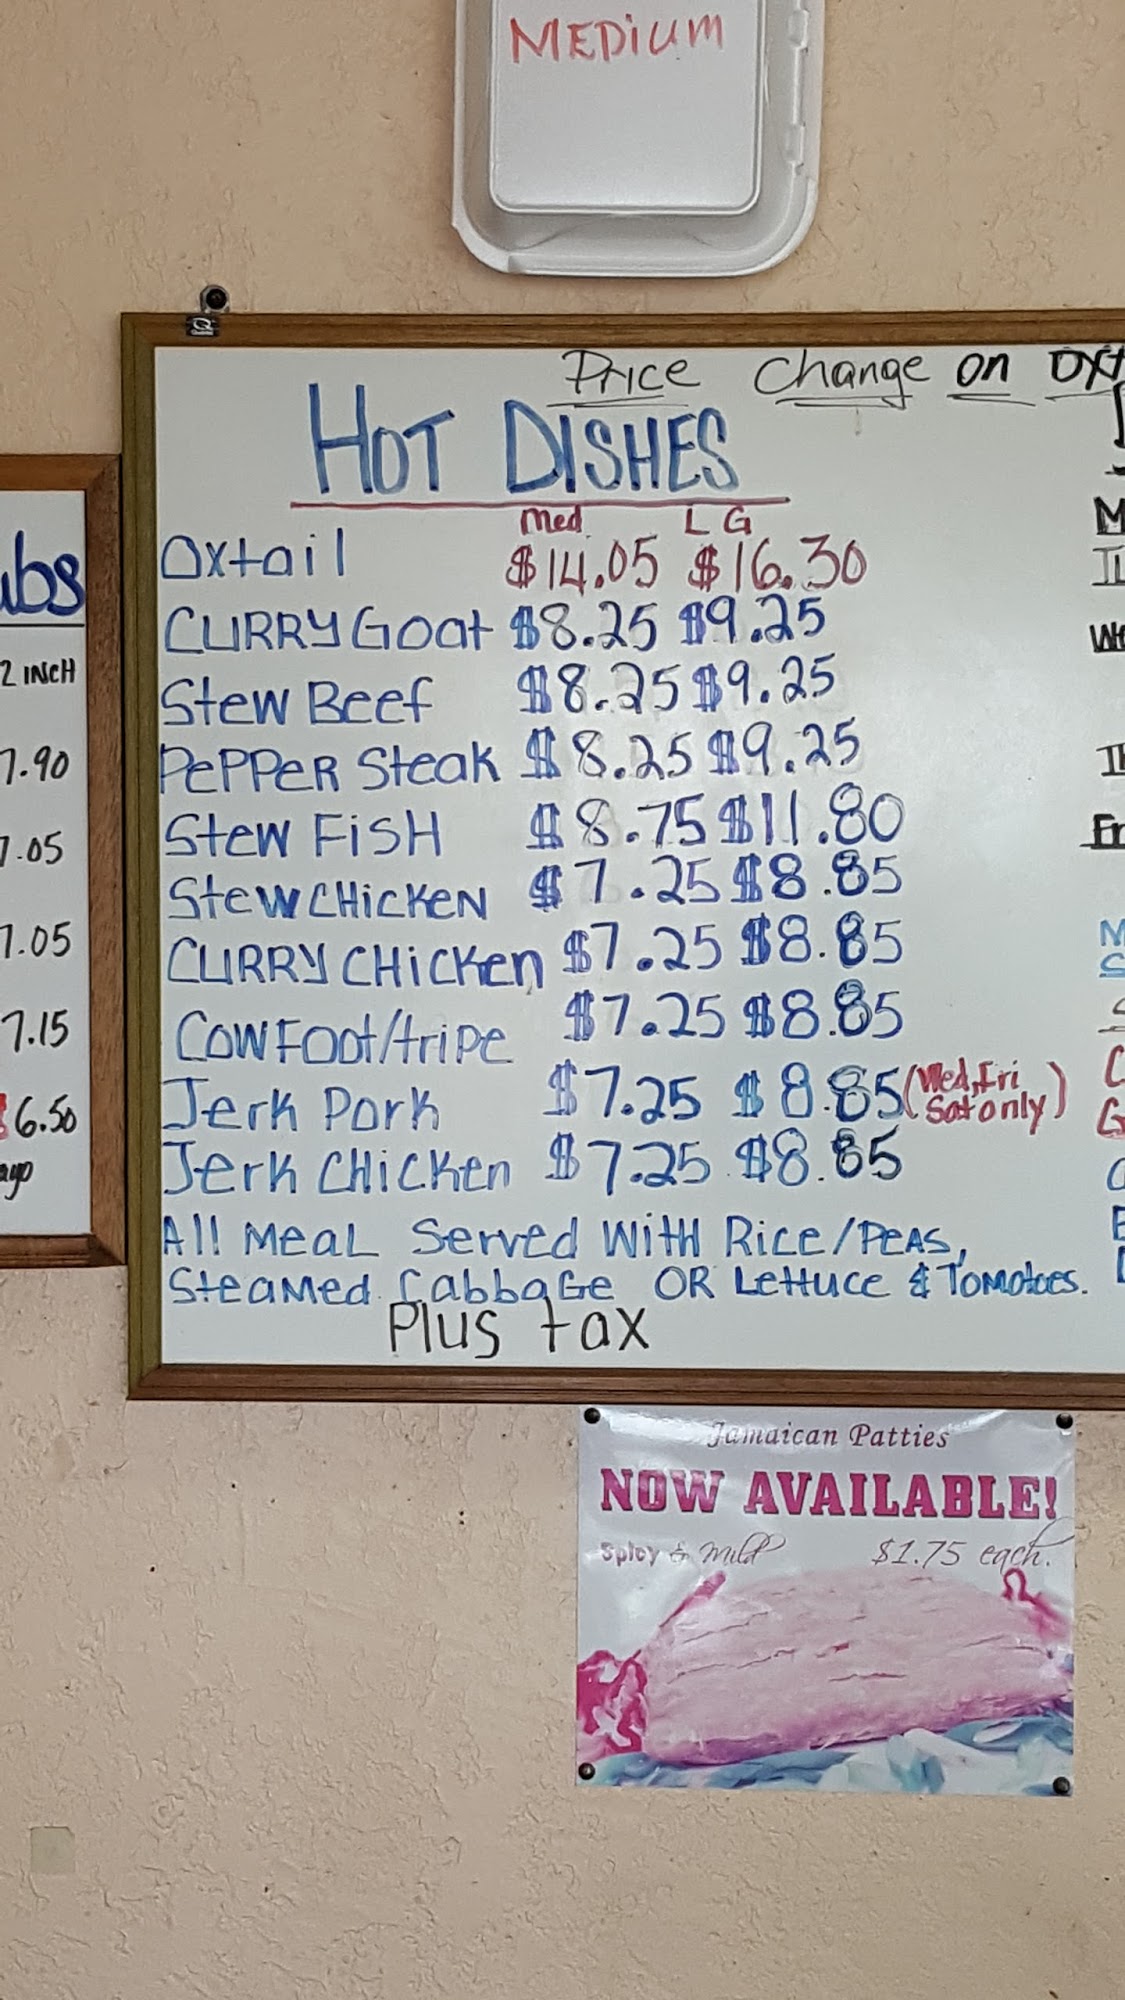 MEDIUM
Price Change on OXT
HOT DISHES
Med LG
Oxtail $14.05 $16.30
CURRY Goat $8.25 $9.25
Stew Beef $8.25 $9.25
PePPeR Steak $8.25 $9.25
Stew FisH $8.75 $11.80
Stew CHicKeN $7.25 $8.85
CURRY CHicKen $7.25 $8.85
Cow Foot/tripe $7.25 $8.85
Jerk Pork $7.25 $8.85 (Wed, Fri
Sat only)
Jerk CHicKen $7.25 $8.85
All MeaL Served With Rice/Peas,
Steamed Cabbage OR Lettuce & Tomatoes.
Plus tax
ubs
2 INCH
7.90
7.05
7.05
7.15
$6.50
Jamaican Patties
NOW AVAILABLE!
Spicy & Mild $1.75 each.